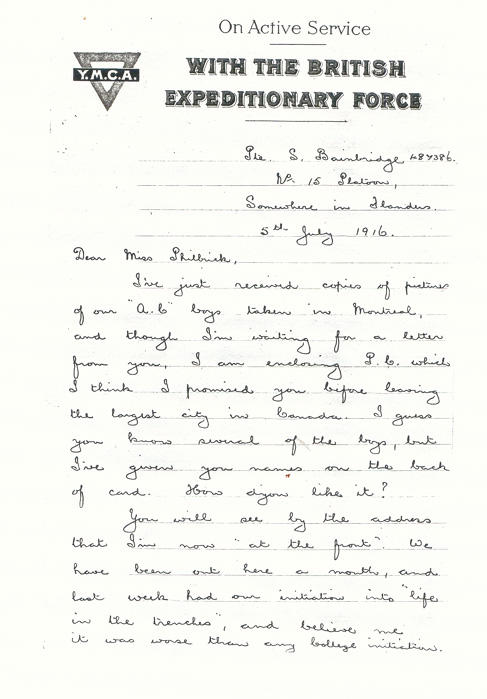 On Active Service
Y.M.C.A.
WITH THE BRITISH
EXPEDITIONARY FORCE
Pte. S. Bainbridge 487386.
No. 15 Platoon,
Somewhere in Flanders.
5th July 1916.
Dear Miss Philbrick,
I've just received copies of pictures
of our "A.C" boys taken in Montreal,
and though I'm waiting for a letter
from you, I am enclosing P.C. which
I think I promised you before leaving
the largest city in Canada. I guess
you know several of the boys, but
I've given you names on the back
of card. How d'you like it?
You will see by the address
that I'm now "at the front". We
have been out here a month, and
last week had our initiation into "life
in the trenches", and believe me
it was worse than any College initiation.